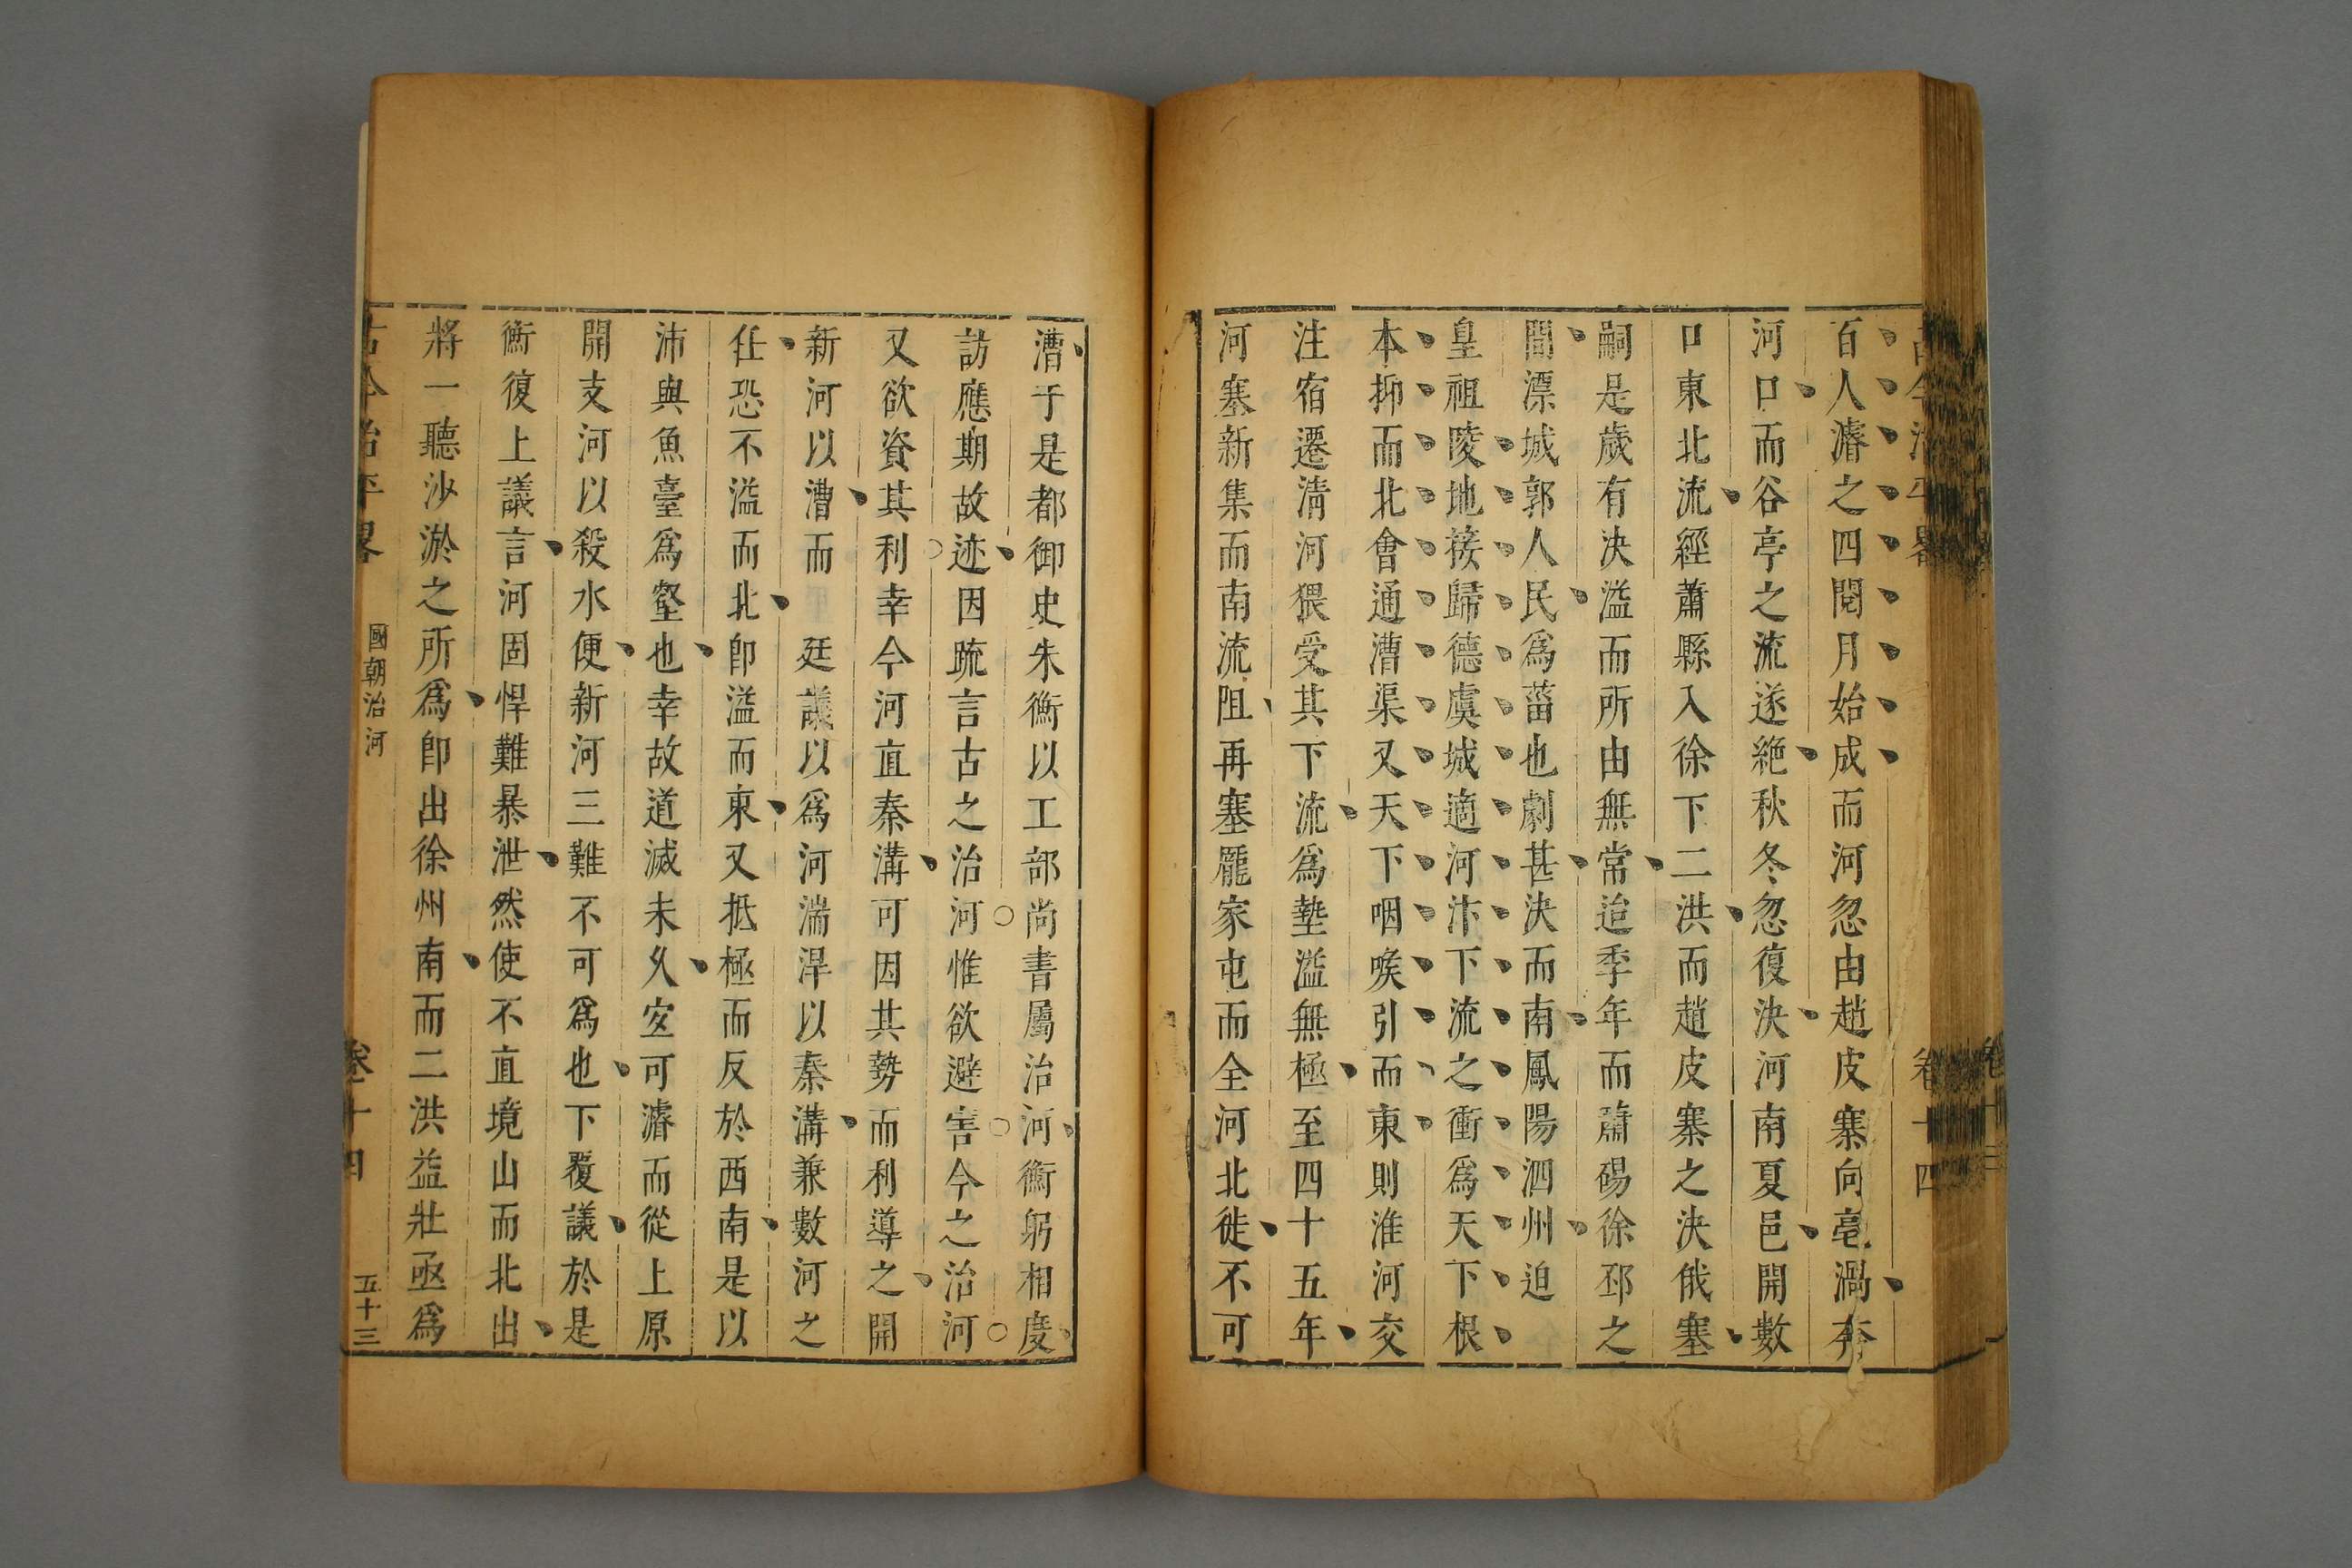 百人濬之四閱月始成而河忽由趙皮寨向亳渦夲
河口而谷亭之流遂絶秋冬忽復決河南夏邑開數
口東北流經蕭縣入徐下二洪而趙皮寨之決俄塞
嗣是歲有決溢而所由無常迨季年而蕭碭徐邳之
間漂城郭人民爲菑也劇甚決而南鳳陽泗州迫
皇祖陵地接歸德虞城適河汴下流之衝爲天下根
本抑而北會通漕渠又天下咽喉引而東則淮河交
注宿遷淸河猥受其下流爲墊溢無極至四十五年
河塞新集而南流阻再塞龐家屯而全河北徙不可
漕于是都御史朱衡以工部尚書屬治河衡躬相度
訪應期故迹因疏言古之治河惟欲避害今之治河
又欲資其利幸今河直秦溝可因其勢而利導之開
新河以漕而 廷議以爲河湍渾以秦溝兼數河之
任恐不溢而北卽溢而東又抵極而反於西南是以
沛與魚臺爲壑也幸故道滅未久宜可濬而從上原
開支河以殺水便新河三難不可爲也下覆議於是
衡復上議言河固悍難暴泄然使不直境山而北出
將一聽沙淤之所爲卽出徐州南而二洪益壯亟爲
古今治平畧 國朝治河 卷十四 五十三